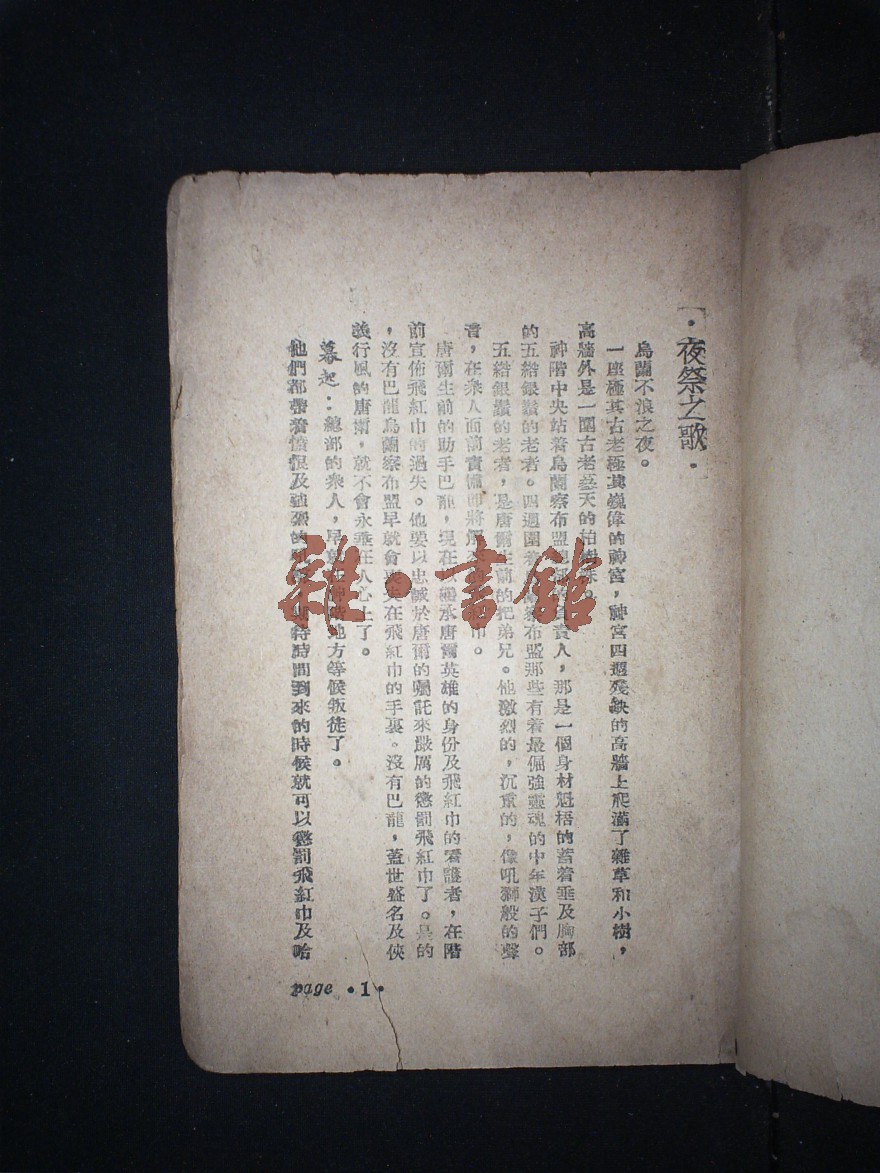 ·夜祭之歌·
烏蘭不浪之夜。
一座極其古老極其巍偉的神宮，神宮四週殘缺的高牆上爬滿了雜草和小樹，
高牆外是一圍古老蔘天的柏樹
神階中央站着烏蘭察布盟總 責人，那是一個身材魁梧的蓄着垂及胸部
的五綹銀鬚的老者。四週圍着 察布盟那些有着最倔強靈魂的中年漢子們。
五綹銀鬚的老者，是唐爾生前的把弟兄。他激烈的，沉重的，像吼獅般的聲
音，在衆人面前責備即將 巾。
唐爾生前的助手巴龍，現在以繼承唐爾英雄的身份及飛紅巾的看護者，在階
前宣佈飛紅巾的過失。他要以忠誠於唐爾的囑託來嚴厲的懲罰飛紅巾了。是的
，沒有巴龍烏蘭察布盟早就會喪失在飛紅巾的手裏。沒有巴龍，蓋世盛名及俠
義行風的唐爾，就不會永垂在人心上了。
幕起：總部的衆人，早就 地方等候叛徒了。
他們都帶着憤恨及強烈的 期待時間到來的時候就可以懲罰飛紅巾及哈
page ·1·
雜·書館